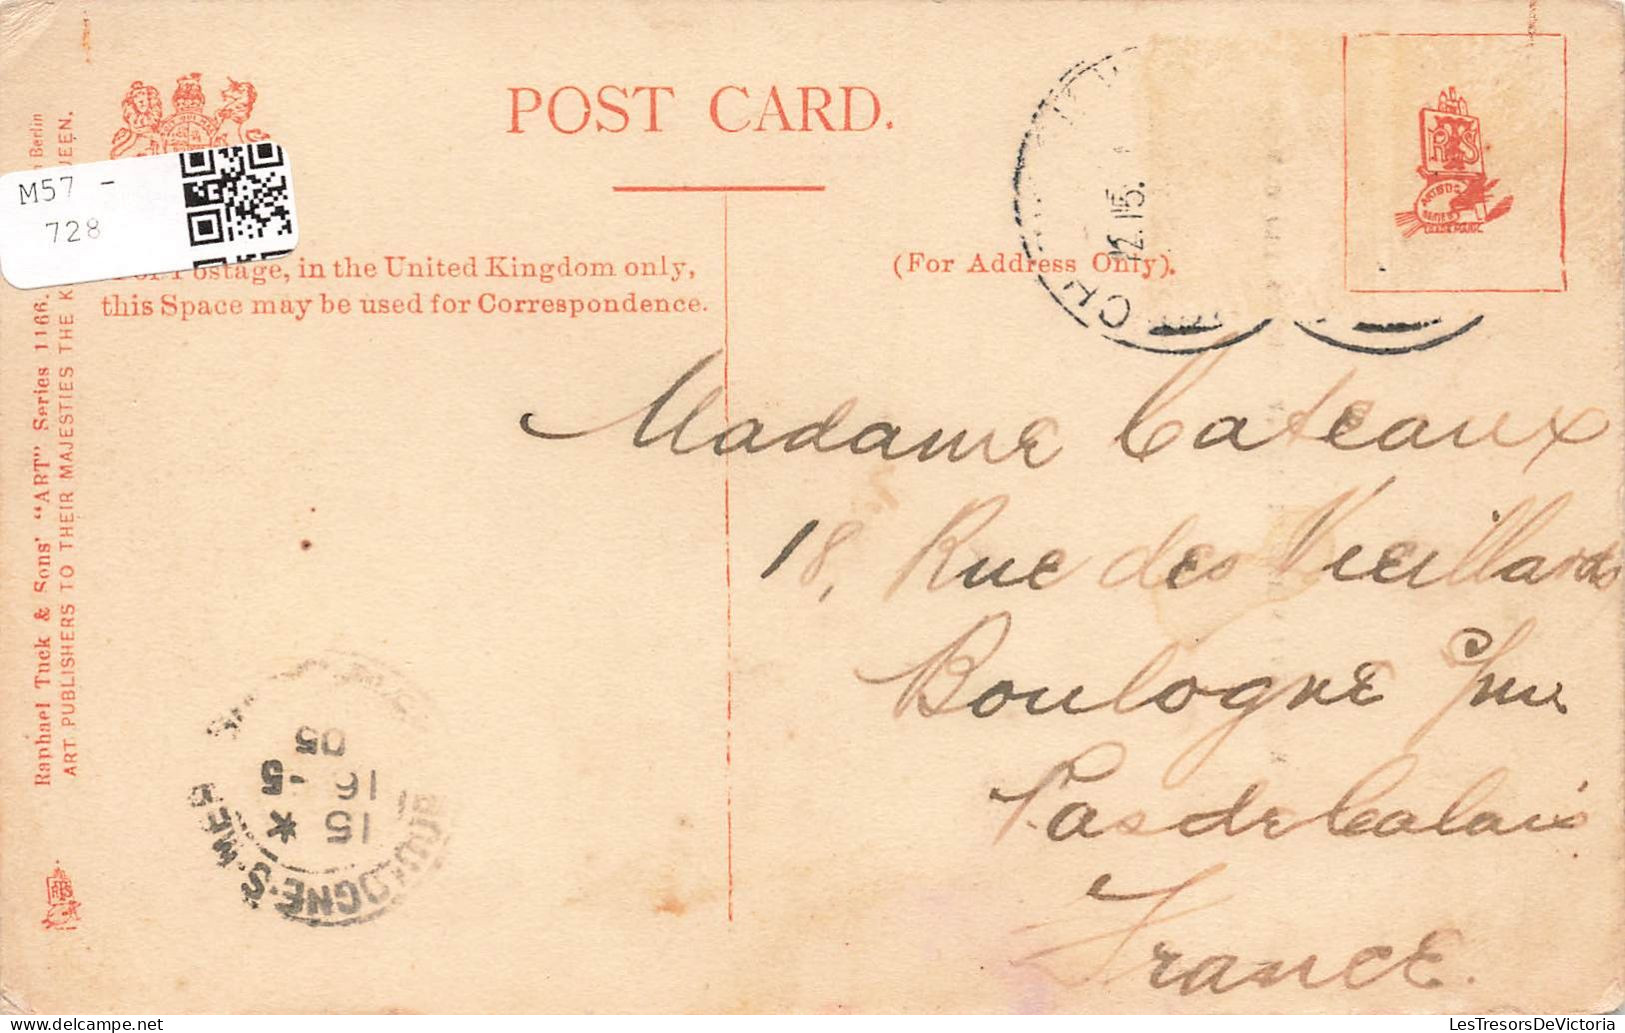 POST CARD.
M57 -
728
For Postage, in the United Kingdom only,
this Space may be used for Correspondence.
(For Address Only).
RTS
TRADE MARK
12.15.
CH
Madame Cateaux
18, Rue des Vieillards
Boulogne s/mer
Pas de Calais
France.
BOULOGNE-S-MER
15 * 5
16
05
Raphael Tuck & Sons' "ART" Series 1166.
Berlin
ART PUBLISHERS TO THEIR MAJESTIES THE K QUEEN.
LesTresorsDeVictoria